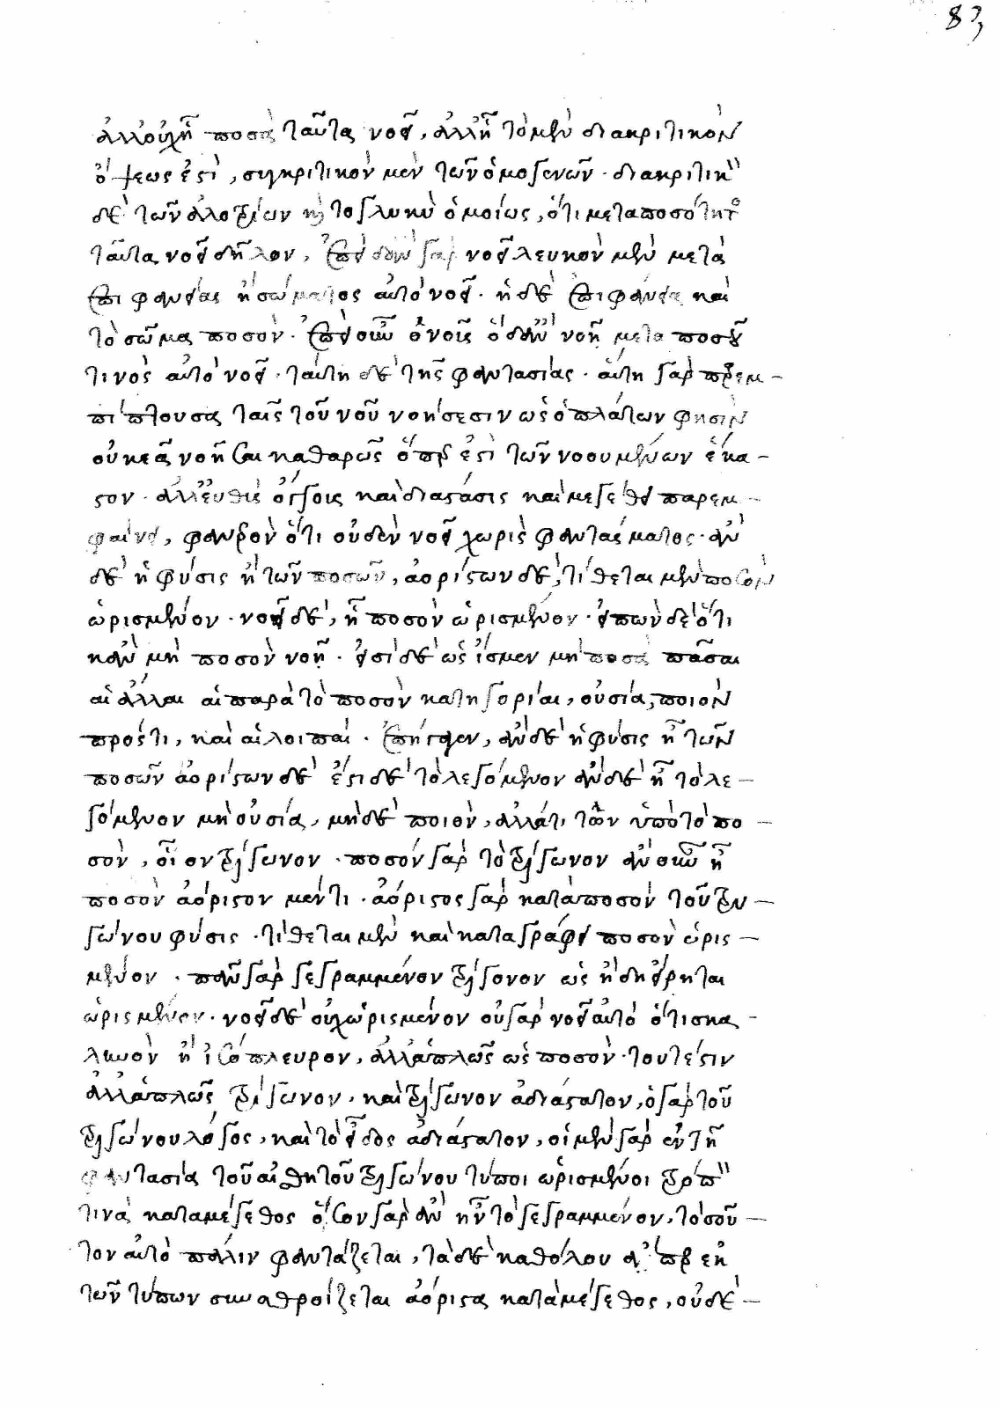 83
ἀλλ' οὐχ ᾗ ποσὰ ταῦτα νοεῖ, ἀλλ' ᾗ τὸ μὲν διακριτικὸν
ὄψεως ἐστὶ, συγκριτικὸν μὲν τῶν ὁμογενῶν · διακριτικὸν
δὲ τῶν ἀλλοτρίων καὶ τὸ γλυκὺ ὁμοίως, ὅτι μετὰ ποσότητος
ταῦτα νοεῖ δῆλον, ἐπειδὰν γὰρ νοεῖ λευκὸν μὲν μετὰ
ἐπιφανείας ἢ σώματος αὐτὸ νοεῖ · ἡ δὲ ἐπιφάνεια καὶ
τὸ σῶμα ποσὸν · ἐπεὶ οὖν ὁ νοῦς ὅταν νοῇ μετὰ ποσοῦ
τινὸς αὐτὸ νοεῖ · ταύτῃ δὲ τῆς φαντασίας · αὕτη γὰρ παρεμ-
πίπτουσα ταῖς τοῦ νοῦ νοήσεσιν ὡς ὁ πλάτων φησὶν
οὐκ ἐᾷ νοῆσαι καθαρῶς ὅπερ ἐστὶ τῶν νοουμένων ἕκα-
στον · ἀλλ' εὐθὺς ὄγκους καὶ διαστάσεις καὶ μεγέθει παρεμ-
φαίνει, φανερὸν ὅτι οὐδὲν νοεῖ χωρὶς φαντάσματος · ἂν
δὲ ἡ φύσις ᾖ τῶν ποσῶν, ἀορίστων δὲ, τίθεται μὲν ποσὸν
ὡρισμένον · νοεῖ δὲ, ᾗ ποσὸν ὡρισμένον · εἰπὼν δὲ ὅτι
κἂν μὴ ποσὸν νοῇ · εἰσὶ δὲ ὡς ἴσμεν μὴ ποσὰ πᾶσαι
αἱ ἄλλαι αἱ παρὰ τὸ ποσὸν κατηγορίαι, οὐσία, ποιὸν
πρός τι, καὶ αἱ λοιπαί · ἐπήγαγεν, ἂν δὲ ἡ φύσις ᾖ τῶν
ποσῶν ἀορίστων δὲ ἔστι δὲ τὸ λεγόμενον ἂν δὲ ᾖ τὸ λε-
γόμενον μὴ οὐσία, μηδὲ ποιὸν, ἀλλά τι τῶν ὑπὸ τὸ πο-
σὸν, οἷον τρίγωνον · ποσὸν γὰρ τὸ τρίγωνον ἂν οὖν ᾖ
ποσὸν ἀόριστον μέντι · ἀόριστος γὰρ κατὰ ποσὸν τοῦ τρι-
γώνου φύσις · τίθεται μὲν καὶ καταγράφει ποσὸν ὡρισ-
μένον · πᾶν γὰρ γεγραμμένον τρίγονον ὡς ἤδη εἴρηται
ὡρισμένον · νοεῖ δὲ οὐχ ὡρισμένον οὐ γὰρ νοεῖ αὐτὸ ὅτι σκα-
ληνὸν ἢ ἰσόπλευρον, ἀλλ' ἁπλῶς ὡς ποσὸν · τουτέστιν
ἀλλ' ἁπλῶς τρίγωνον, καὶ τρίγωνον ἀδιάστατον, ὁ γὰρ τοῦ
τριγώνου λόγος, καὶ τὸ εἶδος ἀδιάστατον, οἱ μὲν γὰρ ἐν τῇ
φαντασίᾳ τοῦ αἰσθητοῦ τριγώνου τύποι ὡρισμένοι τρόπον
τινὰ κατὰ μέγεθος ὅσον γὰρ ἂν ἦν τὸ γεγραμμένον, τοσοῦ-
τον αὐτὸ πάλιν φαντάζεται, τὰ δὲ καθόλου ἅπερ ἐκ
τῶν τύπων συναθροίζεται ἀόριστα κατὰ μέγεθος, οὐδὲ-